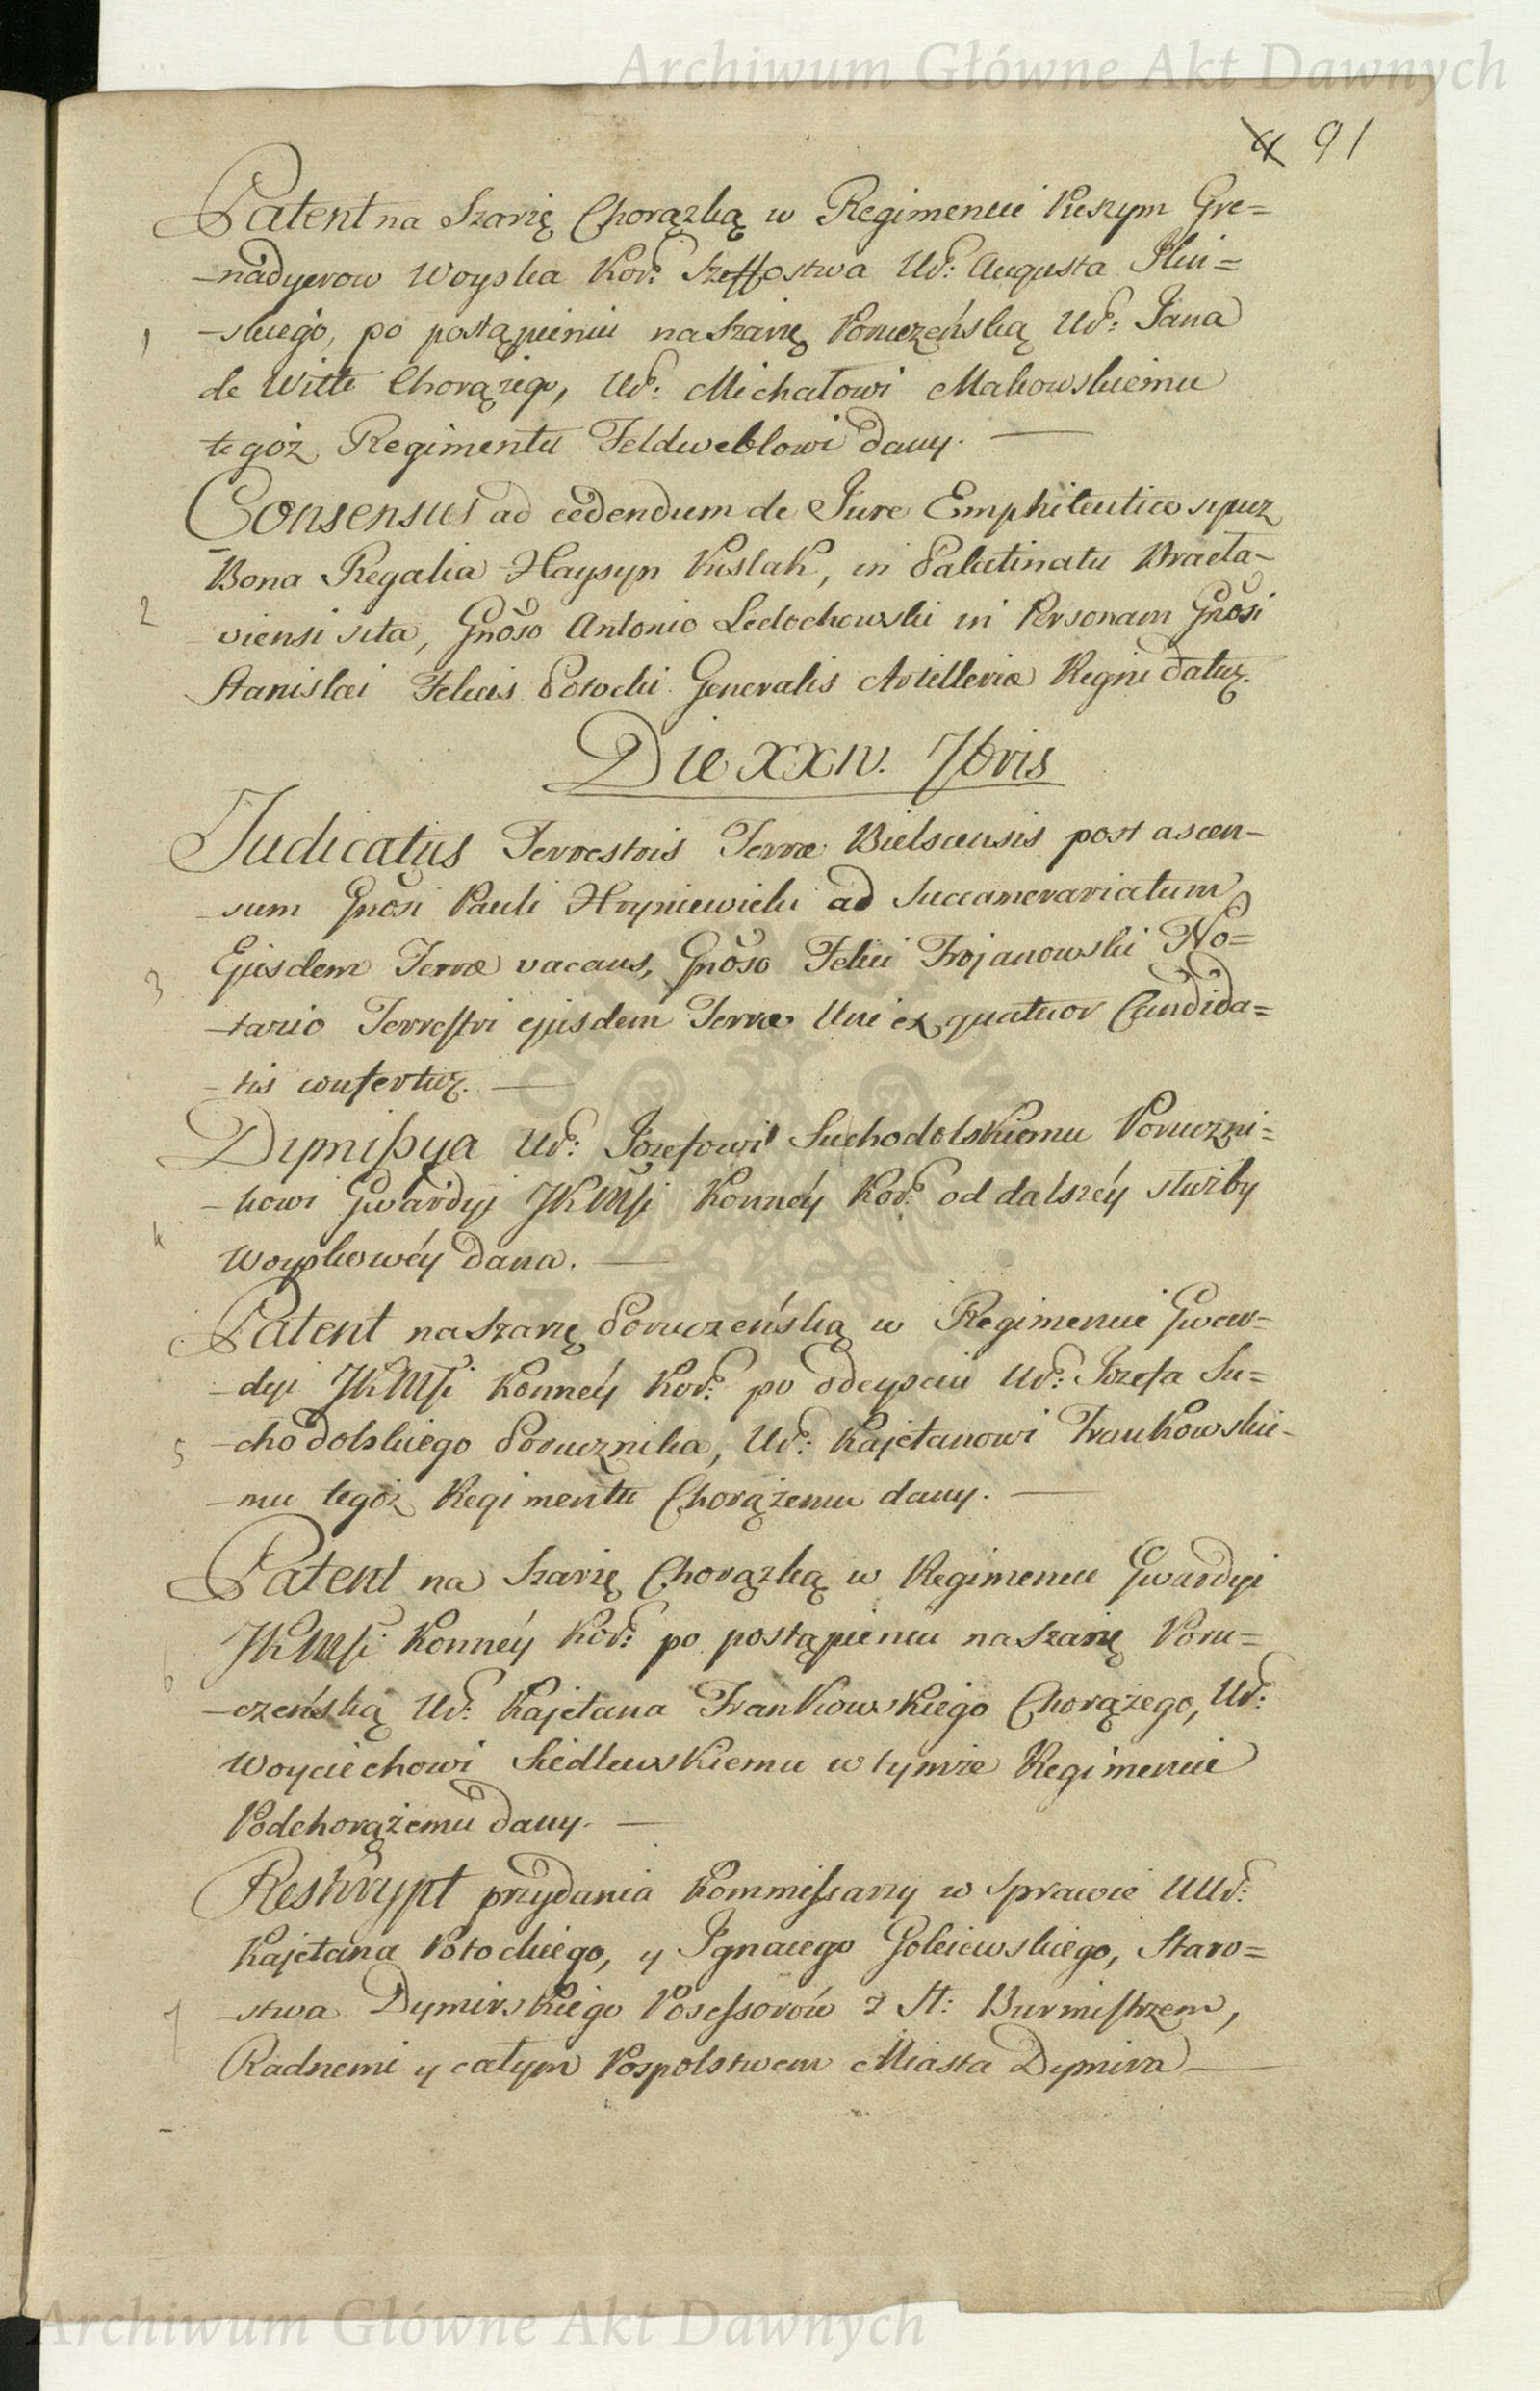 Archiwum Główne Akt Dawnych
91
Patent na Szarżę Chorązką w Regimencie Pieszym Gre=
-nadyerow Woyska Kor: Szeffostwa Ur: Augusta Ilin=
1 -skiego, po postąpieniu na Szarżę Poruczeńską Ur: Jana
de Witte Chorążego, Ur: Michałowi Makowskiemu
tegoż Regimentu Feldweblowi dany. —
Consensus ad cedendum de Jure Emphiteutico super
Bona Regalia Haysyn Kislak, in Palatinatu Bracla-
2 viensi sita, Gnoso Antonio Ledochowski in Personam Gnosi
Stanislai Felicis Potocki Generalis Artilleriæ Regni datur.
Die XXIV. 7bris
Judicatus Terrestris Terræ Bielscensis post ascen-
-sum Gnosi Pauli Hryniewicki ad Succamerariatum
3 Ejusdem Terræ vacans, Gnoso Felici Trojanowski No=
-tario Terrestri ejusdem Terræ Uni ex quatuor Candida=
-tis confertur. —
Dymissya Ur: Jozefowi Suchodolskiemu Poruczni=
4 -kowi Gwardyj JKMsi Konnéy Kor: od dalszéy służby
Woyskowéy dana. —
Patent na Szarżę Porucżeńską w Regimencie Gwar=
-dyi JKMsi Konnéy Kor: po odeyściu Ur: Jozefa Su=
5 -chodolskiego Porucznika, Ur: Kajetanowi Frankowskie-
-mu tegoż Regimentu Chorążemu dany. —
Patent na Szarżę Chorązką w Regimencie Gwardyi
6 JKMsi Konnéy Kor: po postąpieniu na Szarżę Poru=
-czeńską Ur: Kajetana Frankowskiego Chorążego, Ur:
Woyciechowi Siedlewskiemu w tymże Regimencie
Podchorążemu dany. —
Reskrypt przydania Kommissarzy w sprawie UUr:
Kajetana Potockiego, y Ignacego Goleiewskiego, Staro=
7 -stwa Dymirskiego Possessorów z St: Burmistrzem,
Radnemi y całym Pospolstwem Miasta Dymira —
Archiwum Główne Akt Dawnych